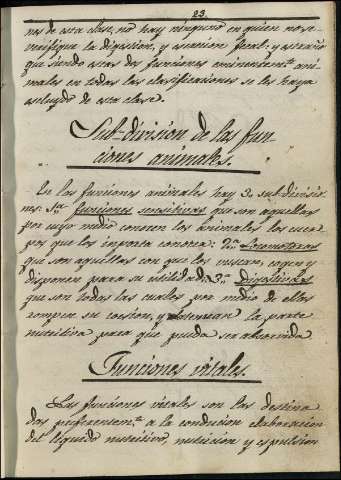 23.
nes de esta clase, no hay ninguno en quien no se
verifique la digestion, y escrecion fecal: y estraño
que siendo estas dos funciones eminentem.te ani-
males en todas las clasificaciones se les haya
escluido de esta clase.
Sub-division de las fun-
ciones animales.
En las funciones animales hay 3 subdivisio-
nes: 1.a funciones sensitivas que son aquellas
por cuyo medio conocen los animales los cuer-
pos que les importa conocer: 2.a Locomotoras
que son aquellas con que los buscan, cogen y
disponen para su utilidad: 3.a Digestivas
que son todas las cuales por medio de ellas
rompen su cocion, y estraen la parte
nutritiva para que pueda ser absorvida
Funciones vitales.
Las funciones vitales son las destina
das preferentem.te a la conducion elaboracion
del liquido nutritivo, nutricion y espulsion